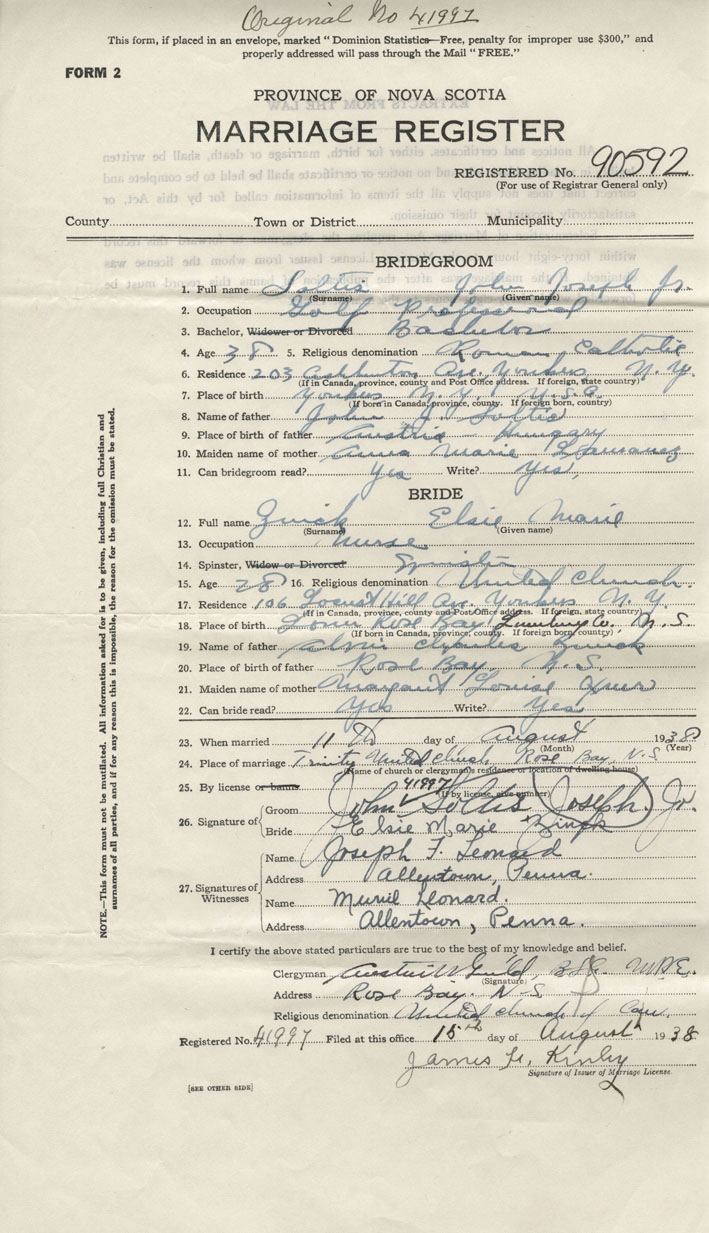 Original No 41997
This form, if placed in an envelope, marked "Dominion Statistics—Free, penalty for improper use $300," and
properly addressed will pass through the Mail "FREE."
FORM 2
PROVINCE OF NOVA SCOTIA
MARRIAGE REGISTER
REGISTERED No. 90592
(For use of Registrar General only)
County Town or District Municipality
BRIDEGROOM
1. Full name Soltis John Joseph Jr.
(Surname) (Given name)
2. Occupation Golf Professional
3. Bachelor, Widower or Divorced Bachelor
4. Age 38 5. Religious denomination Roman Catholic
6. Residence 203 Ashburton Ave, Yonkers, N. Y.
(If in Canada, province, county and Post Office address. If foreign, state country)
7. Place of birth Yonkers N. Y. U.S.A.
(If born in Canada, province, county. If foreign born, country)
8. Name of father John J. Soltis
9. Place of birth of father Austria Hungary
10. Maiden name of mother Anna Marie
11. Can bridegroom read? Yes Write? Yes.
BRIDE
12. Full name Zinck Elsie Marie
(Surname) (Given name)
13. Occupation Nurse
14. Spinster, Widow or Divorced Spinster
15. Age 28 16. Religious denomination United Church.
17. Residence 106 Locust Hill Av. Yonkers N. Y.
(If in Canada, province, county and Post Office address. If foreign, state country)
18. Place of birth Lower Rose Bay, Lunenburg Co. N. S.
(If born in Canada, province, county. If foreign born, country)
19. Name of father Charles Zinck
20. Place of birth of father Rose Bay, N. S.
21. Maiden name of mother Margaret Louise
22. Can bride read? Yes Write? Yes
23. When married 11th day of August 1938
(Month) (Year)
24. Place of marriage Trinity United Church, Rose Bay, N. S.
(Name of church or clergyman's residence or location of dwelling house)
25. By license or banns 41997
(If by license, give number)
26. Signature of Groom John Soltis Joseph Jr.
Bride Elsie Marie Zinck
27. Signatures of Witnesses
Name Joseph F. Leonard
Address Allentown, Penna.
Name Muriel Leonard.
Address Allentown, Penna.
I certify the above stated particulars are true to the best of my knowledge and belief.
Clergyman Guild,
(Signature)
Address Rose Bay. N. S.
Religious denomination United Church of Can.
Registered No. 41997 Filed at this office 15th day of August 1938
James Kinley
Signature of Issuer of Marriage License.
[SEE OTHER SIDE]
NOTE.—This form must not be mutilated. All information asked for is to be given, including full Christian and
surnames of all parties, and if for any reason this is impossible, the reason for the omission must be stated.